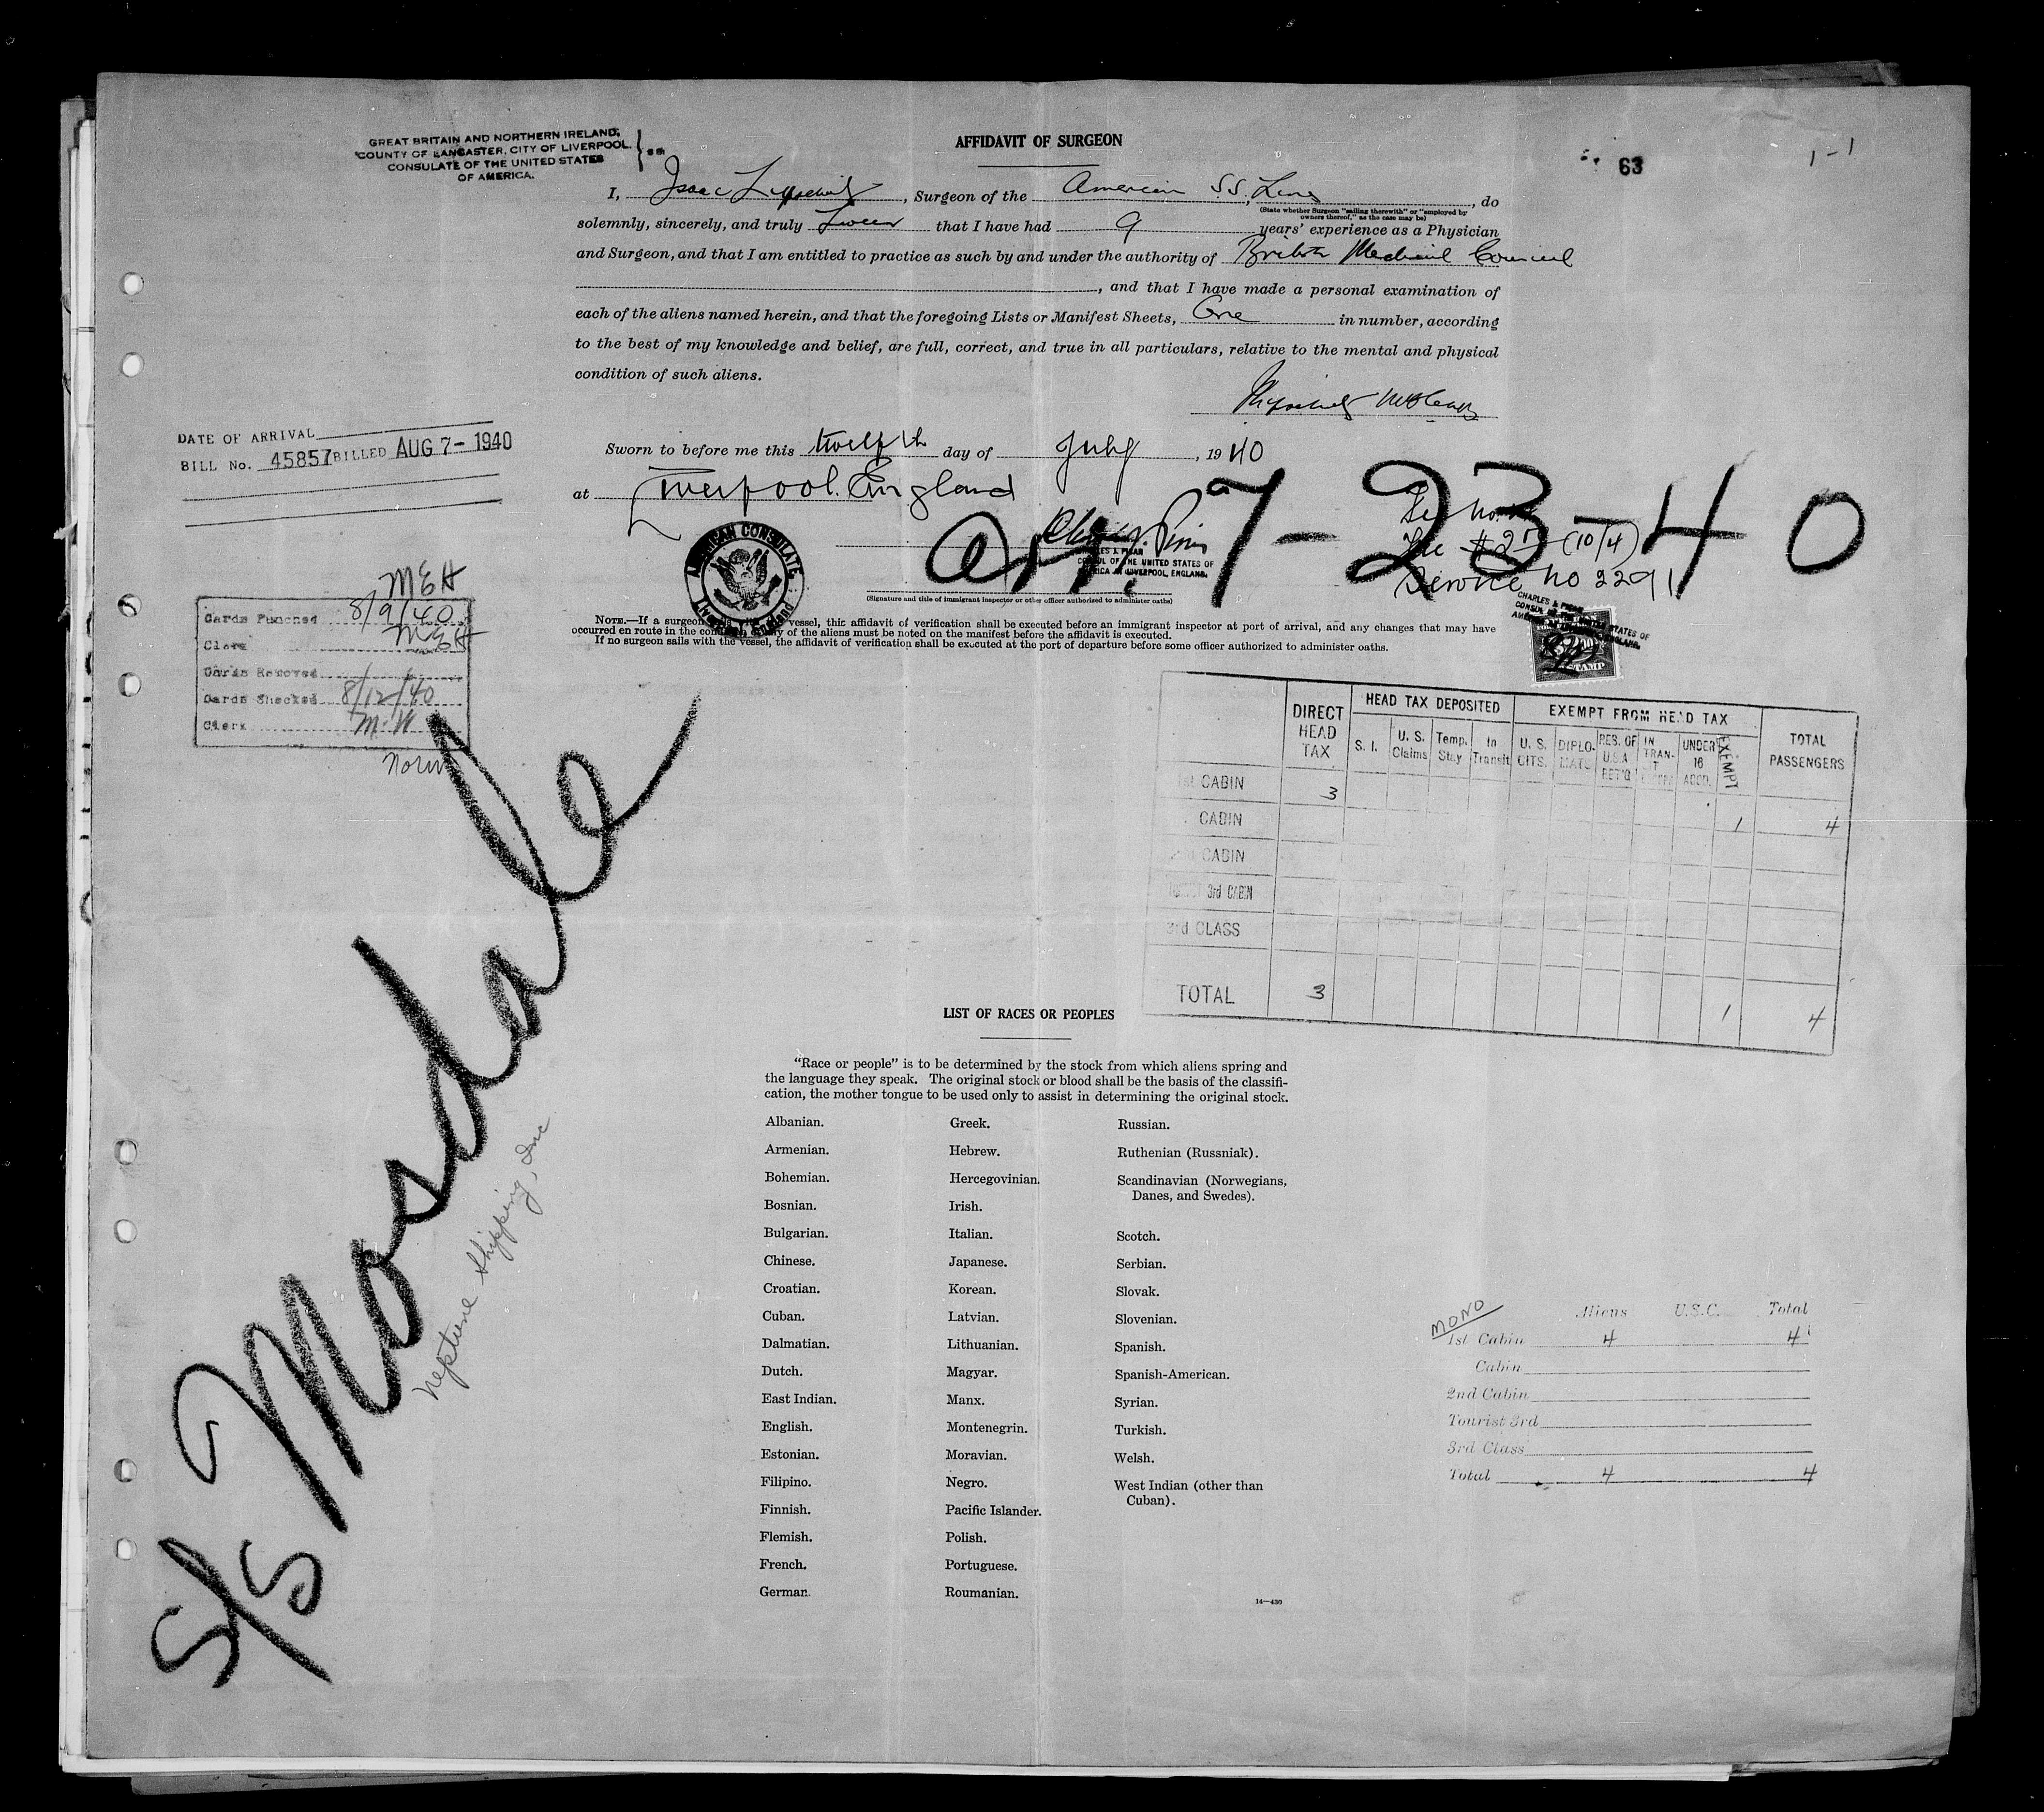 GREAT BRITAIN AND NORTHERN IRELAND,
COUNTY OF LANCASTER, CITY OF LIVERPOOL
CONSULATE OF THE UNITED STATES
OF AMERICA.
} ss
AFFIDAVIT OF SURGEON
63
1-1
I, Isaac, Surgeon of the American S.S. Lines, do
(State whether Surgeon "sailing therewith" or "employed by
owners thereof," as the case may be)
solemnly, sincerely, and truly Swear that I have had 9 years' experience as a Physician
and Surgeon, and that I am entitled to practice as such by and under the authority of British Medical Council
, and that I have made a personal examination of
each of the aliens named herein, and that the foregoing Lists or Manifest Sheets, One in number, according
to the best of my knowledge and belief, are full, correct, and true in all particulars, relative to the mental and physical
condition of such aliens.
Sworn to before me this twelfth day of July, 1940
at Liverpool. England
DATE OF ARRIVAL
BILL No. 45857 BILLED AUG 7-1940
Arr. 7-23-40
Fee $2 (10/4)
Service No 2291
AMERICAN CONSULATE
Liverpool, England
CHARLES J. PISAR
CONSUL OF THE UNITED STATES OF
AMERICA AT LIVERPOOL, ENGLAND.
(Signature and title of immigrant inspector or other officer authorized to administer oaths)
CHARLES J. PISAR
CONSUL OF THE UNITED STATES OF
AMERICA AT LIVERPOOL, ENGLAND.
STAMP
NOTE.—If a surgeon sails with vessel, this affidavit of verification shall be executed before an immigrant inspector at port of arrival, and any changes that may have
occurred en route in the condition of any of the aliens must be noted on the manifest before the affidavit is executed.
If no surgeon sails with the vessel, the affidavit of verification shall be executed at the port of departure before some officer authorized to administer oaths.
MEH
Cards Punched 8/9/40
Clerk MEH
Cards Removed
Cards Checked 8/12/40
Clerk M.W
DIRECT HEAD TAX
HEAD TAX DEPOSITED
EXEMPT FROM HEAD TAX
TOTAL PASSENGERS
S. I. U. S. Claims Temp. Stay In Transit U. S. CITS. DIPLOMATS RES. OF U.S.A RET'G IN TRANT UNDER 16 ACCD. EXEMPT
1st CABIN 3
CABIN 1 4
2nd CABIN
3rd CABIN
3rd CLASS
TOTAL 3 1 4
S/S Mosdale
Neptune Shipping, Inc
LIST OF RACES OR PEOPLES
"Race or people" is to be determined by the stock from which aliens spring and
the language they speak. The original stock or blood shall be the basis of the classifi-
cation, the mother tongue to be used only to assist in determining the original stock.
Albanian.
Armenian.
Bohemian.
Bosnian.
Bulgarian.
Chinese.
Croatian.
Cuban.
Dalmatian.
Dutch.
East Indian.
English.
Estonian.
Filipino.
Finnish.
Flemish.
French.
German.
Greek.
Hebrew.
Hercegovinian.
Irish.
Italian.
Japanese.
Korean.
Latvian.
Lithuanian.
Magyar.
Manx.
Montenegrin.
Moravian.
Negro.
Pacific Islander.
Polish.
Portuguese.
Roumanian.
Russian.
Ruthenian (Russniak).
Scandinavian (Norwegians,
Danes, and Swedes).
Scotch.
Serbian.
Slovak.
Slovenian.
Spanish.
Spanish-American.
Syrian.
Turkish.
Welsh.
West Indian (other than
Cuban).
14—430
MONO
Aliens U.S.C. Total
1st Cabin 4 4
Cabin
2nd Cabin
Tourist 3rd
3rd Class
Total 4 4